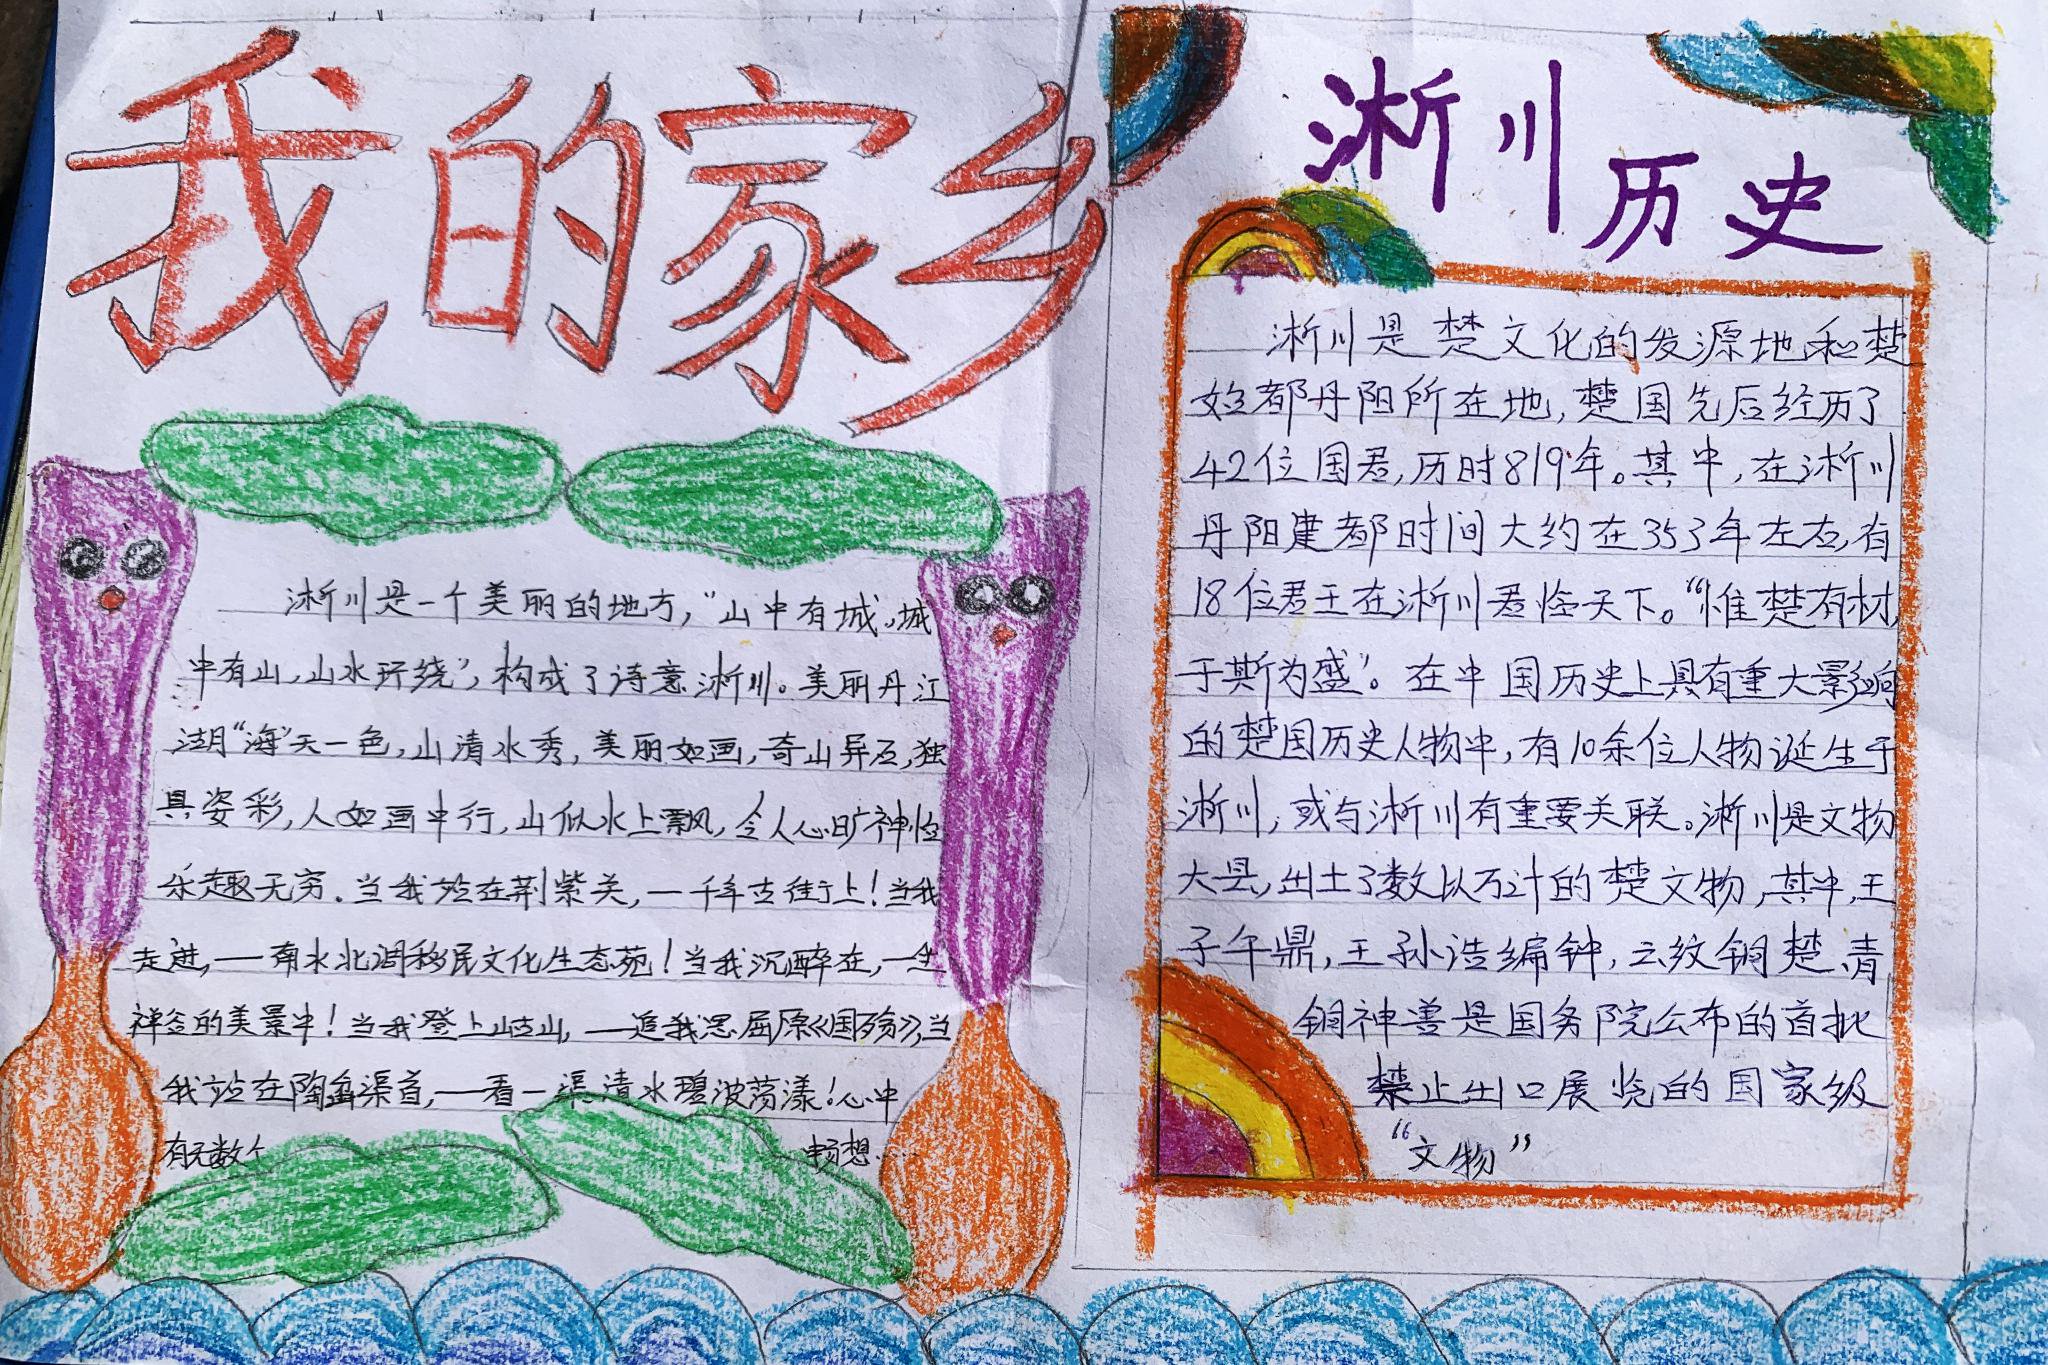 我的家乡
淅川是一个美丽的地方，“山中有城，城
中有山，山水环绕”，构成了诗意淅川。美丽丹江
湖“海”天一色，山清水秀，美丽如画，奇山异石，独
具姿彩，人如画中行，山似水上飘，令人心旷神怡
乐趣无穷。当我站在荆紫关，一千年古街上！当我
走进，一南水北调移民文化生态苑！当我沉醉在，一坐
禅谷的美景中！当我登上岵山，一追我思屈原《国殇》，当
我站在陶岔渠首，一看一渠清水碧波荡漾！心中
有无数个 畅想……
淅川历史
淅川是楚文化的发源地和楚
始都丹阳所在地，楚国先后经历了
42位国君，历时819年。其中，在淅川
丹阳建都时间大约在353年左右，有
18位君王在淅川君临天下。“惟楚有材，
于斯为盛”。在中国历史上具有重大影响
的楚国历史人物中，有10余位人物诞生于
淅川，或与淅川有重要关联。淅川是文物
大县，出土了数以万计的楚文物，其中，王
子午鼎，王孙诰编钟，云纹铜楚、青
铜神兽是国务院公布的首批
禁止出口展览的国家级
“文物”